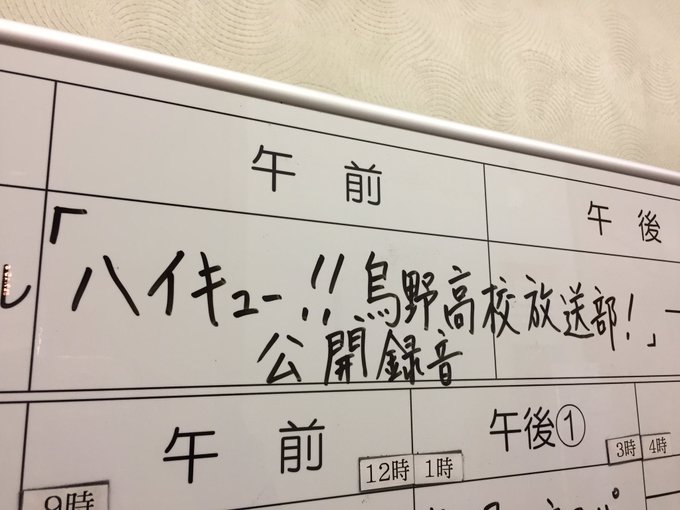 午前
午後
「ハイキュー!!烏野高校放送部!」
公開録音
午前
午後①
12時
1時
3時
4時
9時